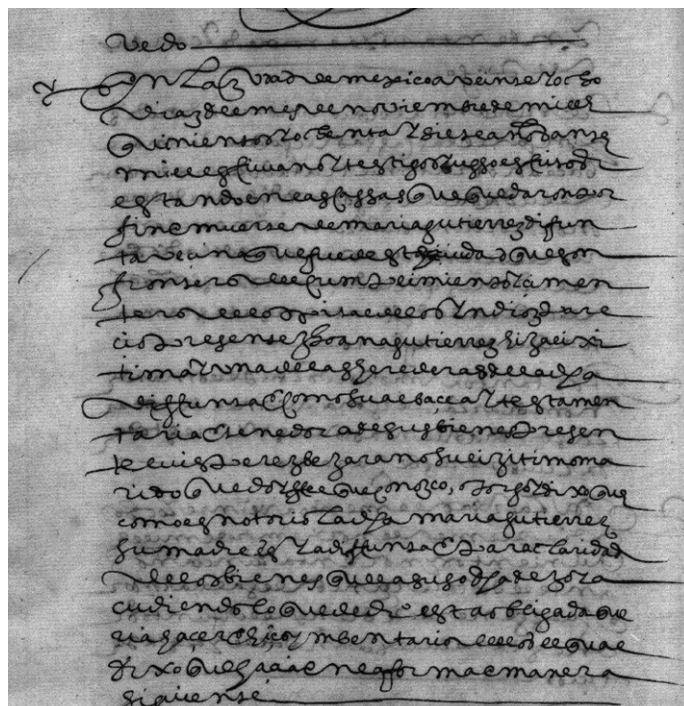 vedo
En la ziudad de mexico a veinte y ocho
dias del mes de noviembre de mill
quinientos y ochenta y siete años ante
mi el escrivano y testigos yuso escritos
estando en las cassas que quedaron por
fin e muerte de maria gutierrez difun
ta vezina que fue desta ciudad que son
frontero del
tero del ospital de los yndios pare
cio presente Joana gutierrez hija lexi
tima y una de las herederas de la dha
difunta e como su albacea y testamen
taria e tenedora de sus bienes presen
te luis perez bezarano su lexitimo ma
rido que doy fee que conozco, otorgo y dixo que
como es notorio la dha maria gutierrez
su madre es ya difunta e para claridad
de los bienes que la susodha dexo y a
cudiendo lo que de dro esta obligada que
ria hacer e hico ymbentario dellos el qual
dixo que hacia e en la forma e manera
siguiente